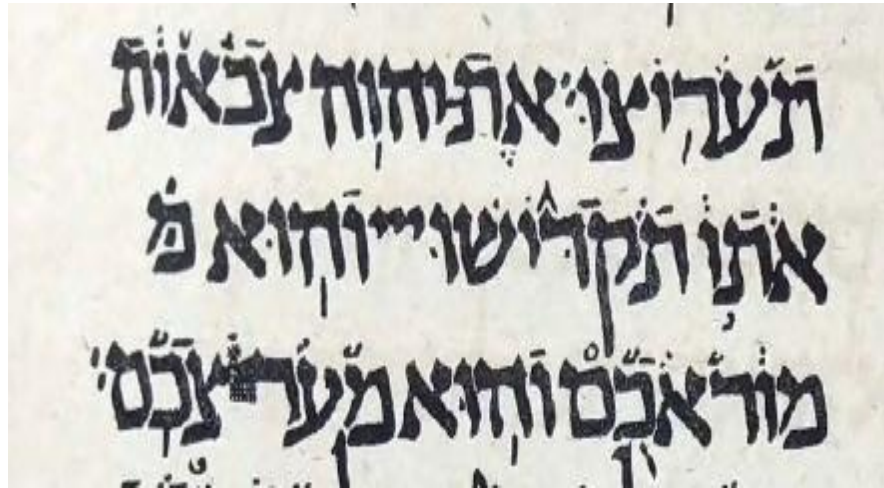 תעריצו׃ את יהוה צבאות
אתו תקדישו והוא מ
מוראכם והוא מערצכם׃